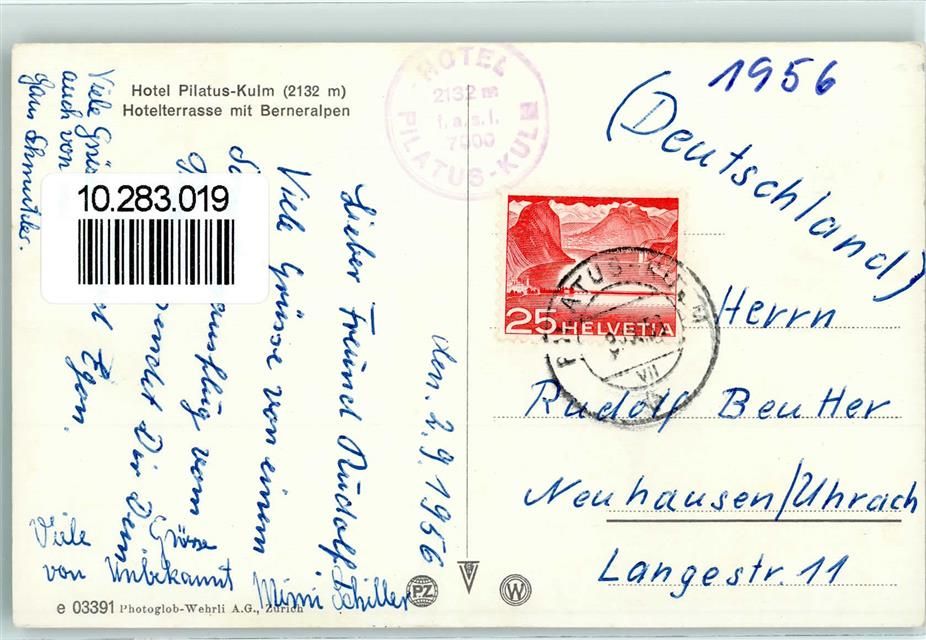 Hotel Pilatus-Kulm (2132 m)
Hotelterrasse mit Berneralpen
HOTEL
2132 m
f.a.s.l.
7000
PILATUS-KULM
1956
(Deutschland)
25 HELVETIA
PILATUS-KULM
VII
Herrn
Rudolf Beutter
Neuhausen/Uhrach
Langestr. 11
den. 2.9.1956
Lieber Freund Rudolf.
Viele Grüsse von einem
ausflug vom
sendet Dir Dein
Egon.
Viele Grüs
auch von
Hans
10.283.019
Viele Grüsse
von Unbekannt
Mimi Schiller
e 03391 Photoglob-Wehrli A.G., Zürich
PZ
W